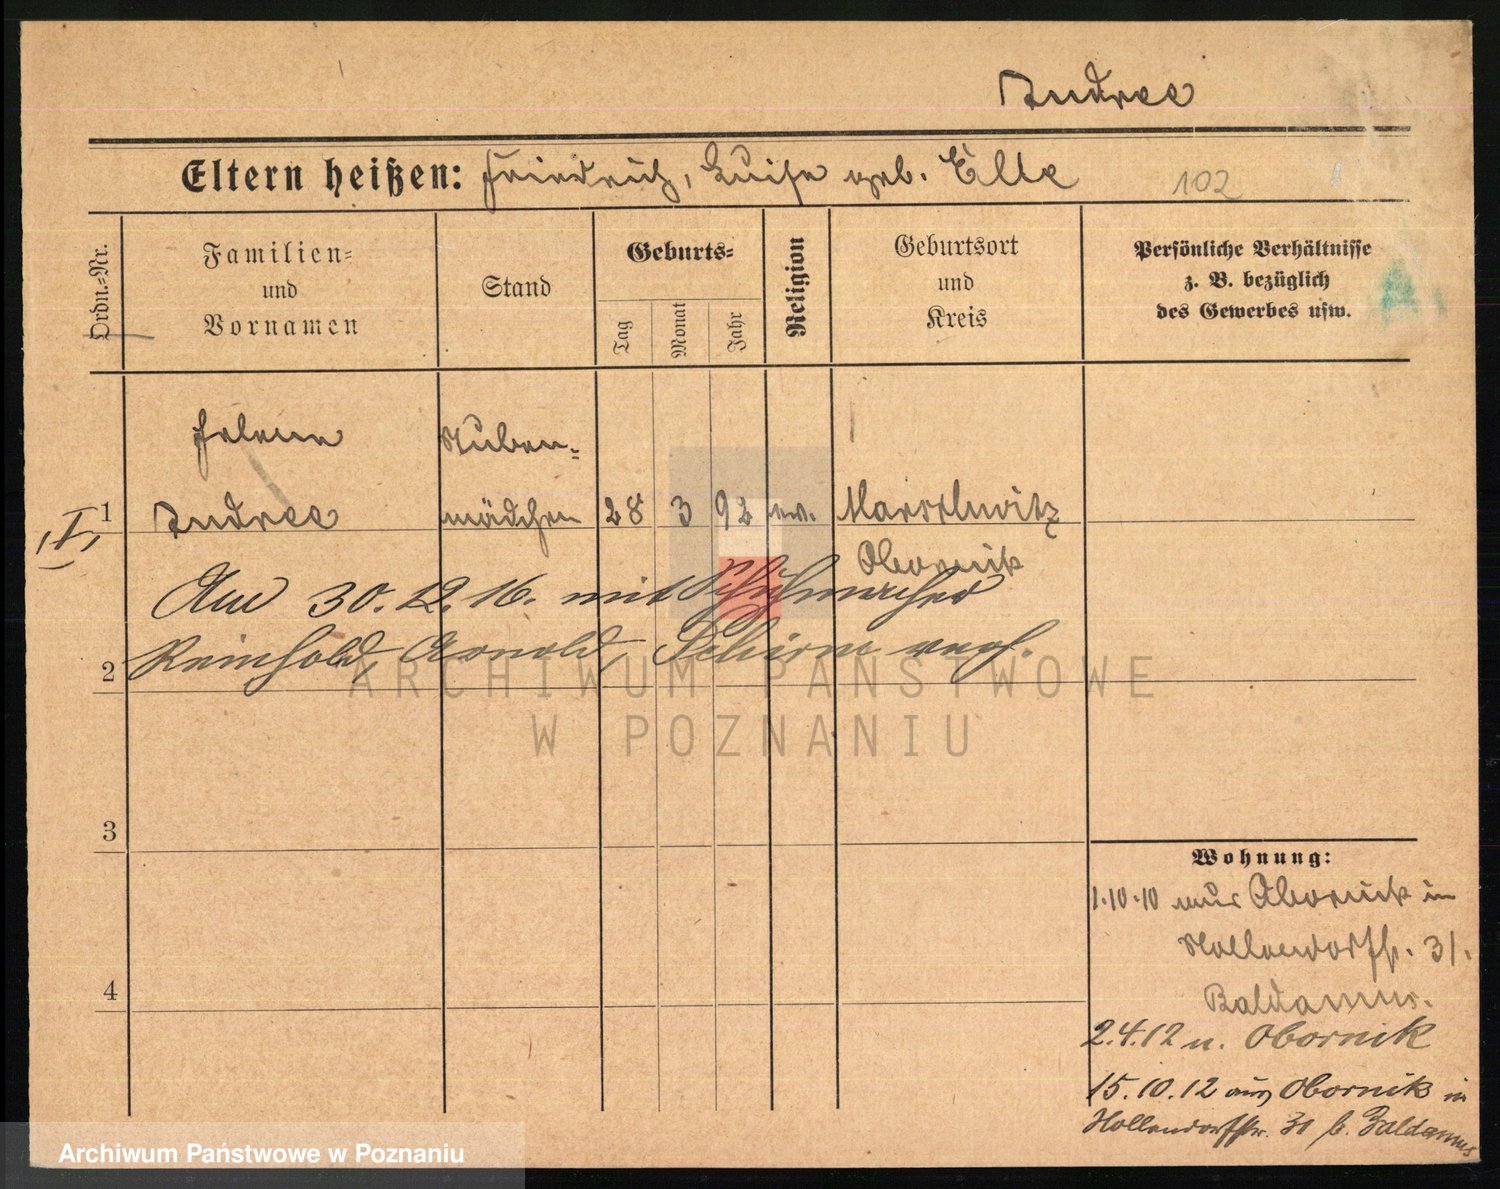 Andree
Eltern heißen: Friedrich, Luise geb. Elle
102
Ordn.-Nr.
Familien-
und
Vornamen
Stand
Geburts-
Tag
Monat
Jahr
Religion
Geburtsort
und
Kreis
Persönliche Verhältnisse
z. B. bezüglich
des Gewerbes usw.
Helene Stuben-
I, 1 Andree mädchen 28 3 92 ev.
Obornik
Am 30.12.16. mit Schuhmacher
2 Reinhold, Arnold, Schirm verh.
ARCHIWUM PAŃSTWOWE
W POZNANIU
3
Wohnung:
1.10.10 aus Obornik in
Hollendorffstr. 31.
Baldamus.
4
2.4.12 n. Obornik
15.10.12 aus Obornik in
Hollendorffstr. 31 b. Baldamus
Archiwum Państwowe w Poznaniu